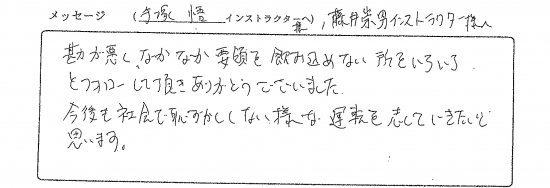 メッセージ (手塚 悟 インストラクター様へ), 藤井崇男インストラクター様へ
勘が悪く、なかなか要領を飲み込めない所をいろいろ
とフォローして頂きありがとうございました。
今後も社会で恥ずかしくない様な運転を志していきたいと
思います。